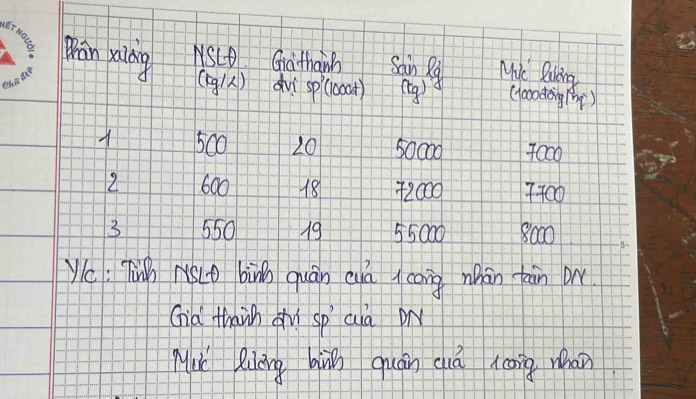 NÉT NGƯỜI
Phân xưởng NSLĐ Giá thành Sản lg Mức lương
(kg/ng) đvị sp (1000đ) (kg) (1000đồng/ng)
1 500 20 50000 7000
2 600 18 72000 7700
3 550 19 55000 8000
Y/c: Tính NSLĐ bình quân của 1 công nhân toàn DN.
Giá thành đvị sp của DN
Mức lương bình quân của 1 công nhân.